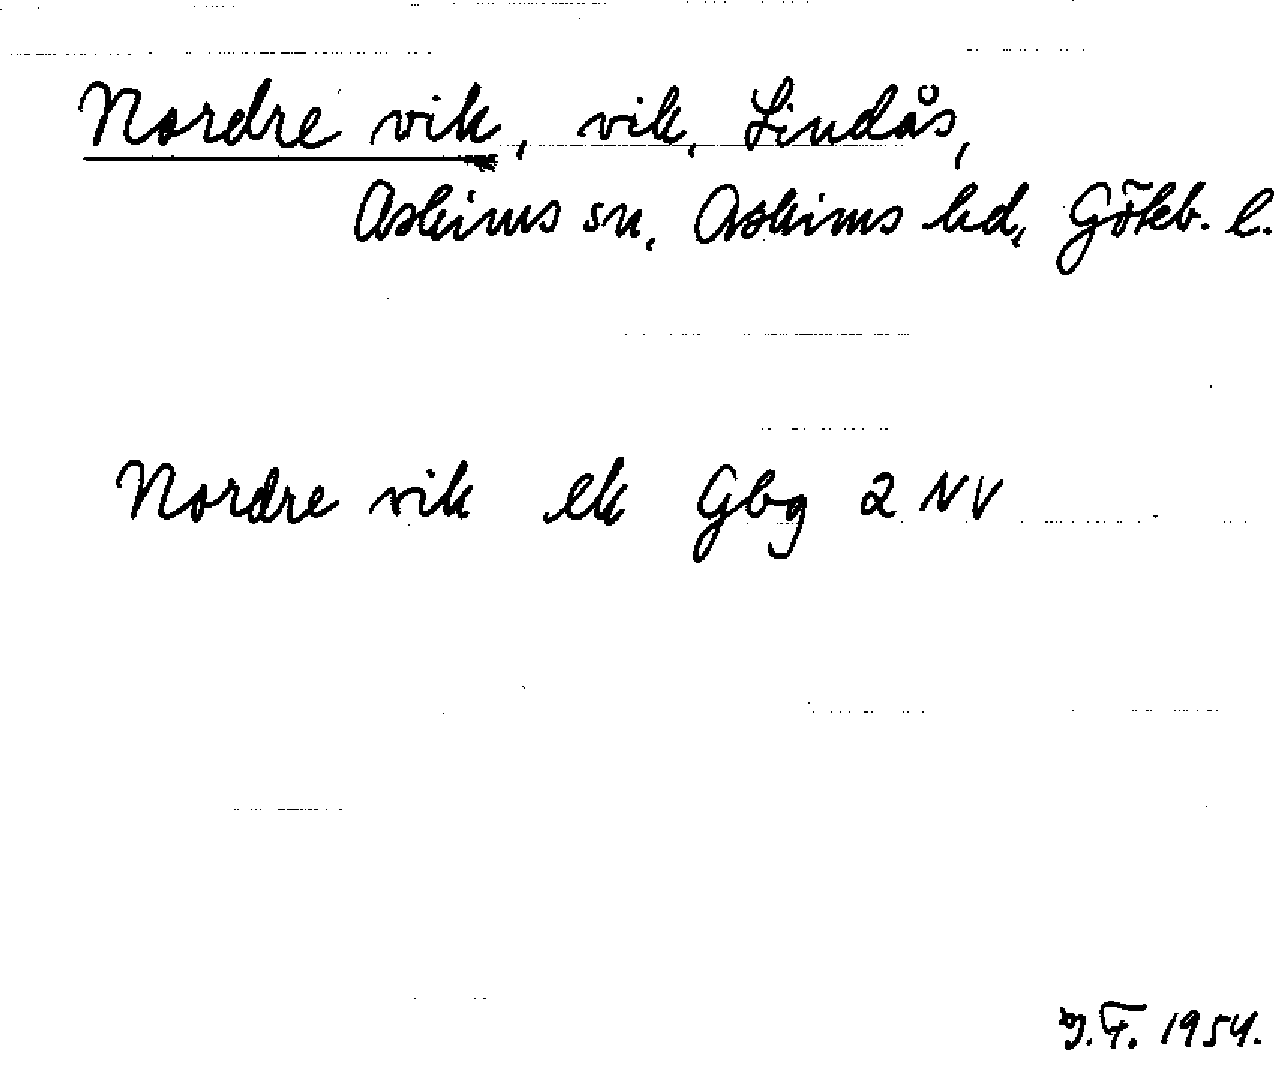 Nordre vik, vik, Lindås,
Askims sn, Askims hd, Göteb. l.
Nordre vik ek Gbg 2 NV
G.F. 1954.